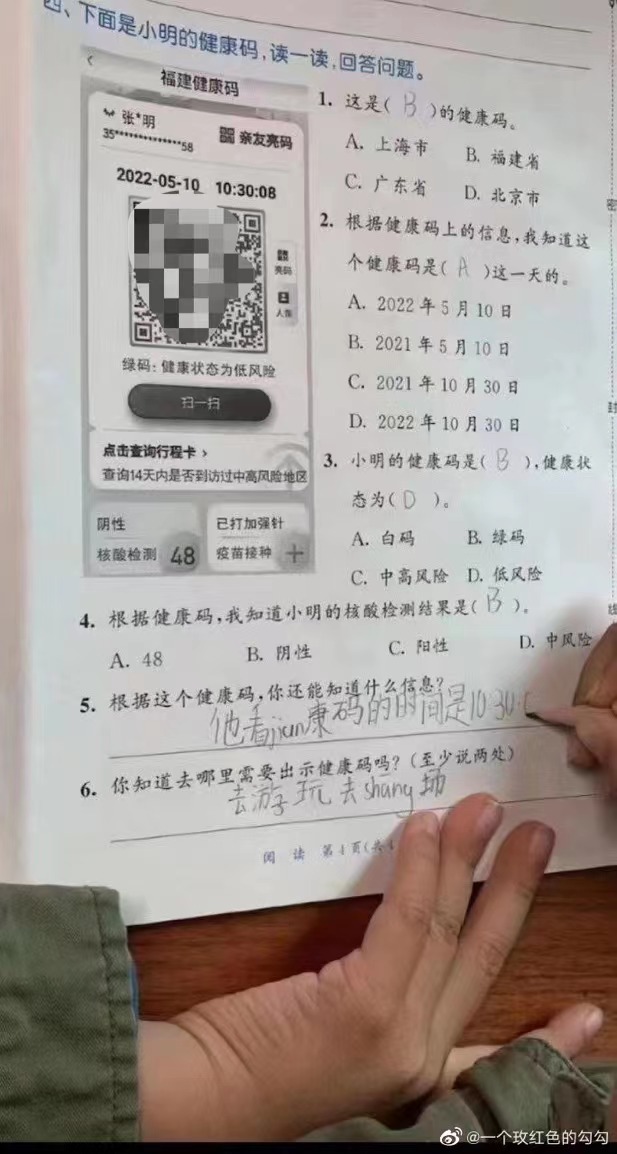 四、下面是小明的健康码,读一读,回答问题。
福建健康码
张*明
35**************58
亲友亮码
2022-05-10 10:30:08
亮码
绿码:健康状态为低风险
扫一扫
点击查询行程卡 ›
查询14天内是否到访过中高风险地区
阴性
核酸检测 48
已打加强针
疫苗接种
1. 这是( B )的健康码。
A. 上海市 B. 福建省
C. 广东省 D. 北京市
2. 根据健康码上的信息,我知道这
个健康码是( A )这一天的。
A. 2022年5月10日
B. 2021年5月10日
C. 2021年10月30日
D. 2022年10月30日
3. 小明的健康码是( B ),健康状
态为( D )。
A. 白码 B. 绿码
C. 中高风险 D. 低风险
4. 根据健康码,我知道小明的核酸检测结果是( B )。
A. 48 B. 阴性 C. 阳性 D. 中风险
5. 根据这个健康码,你还能知道什么信息?
他看jiàn康码的时间是10:30:
6. 你知道去哪里需要出示健康码吗?(至少说两处)
去游玩 去shāng场
阅 读 第4页(共4
密
封
线
@一个玫红色的勾勾